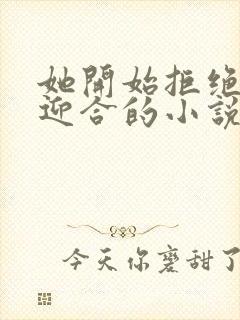 她開始拒绝
迎合的小說
今天你磨甜了